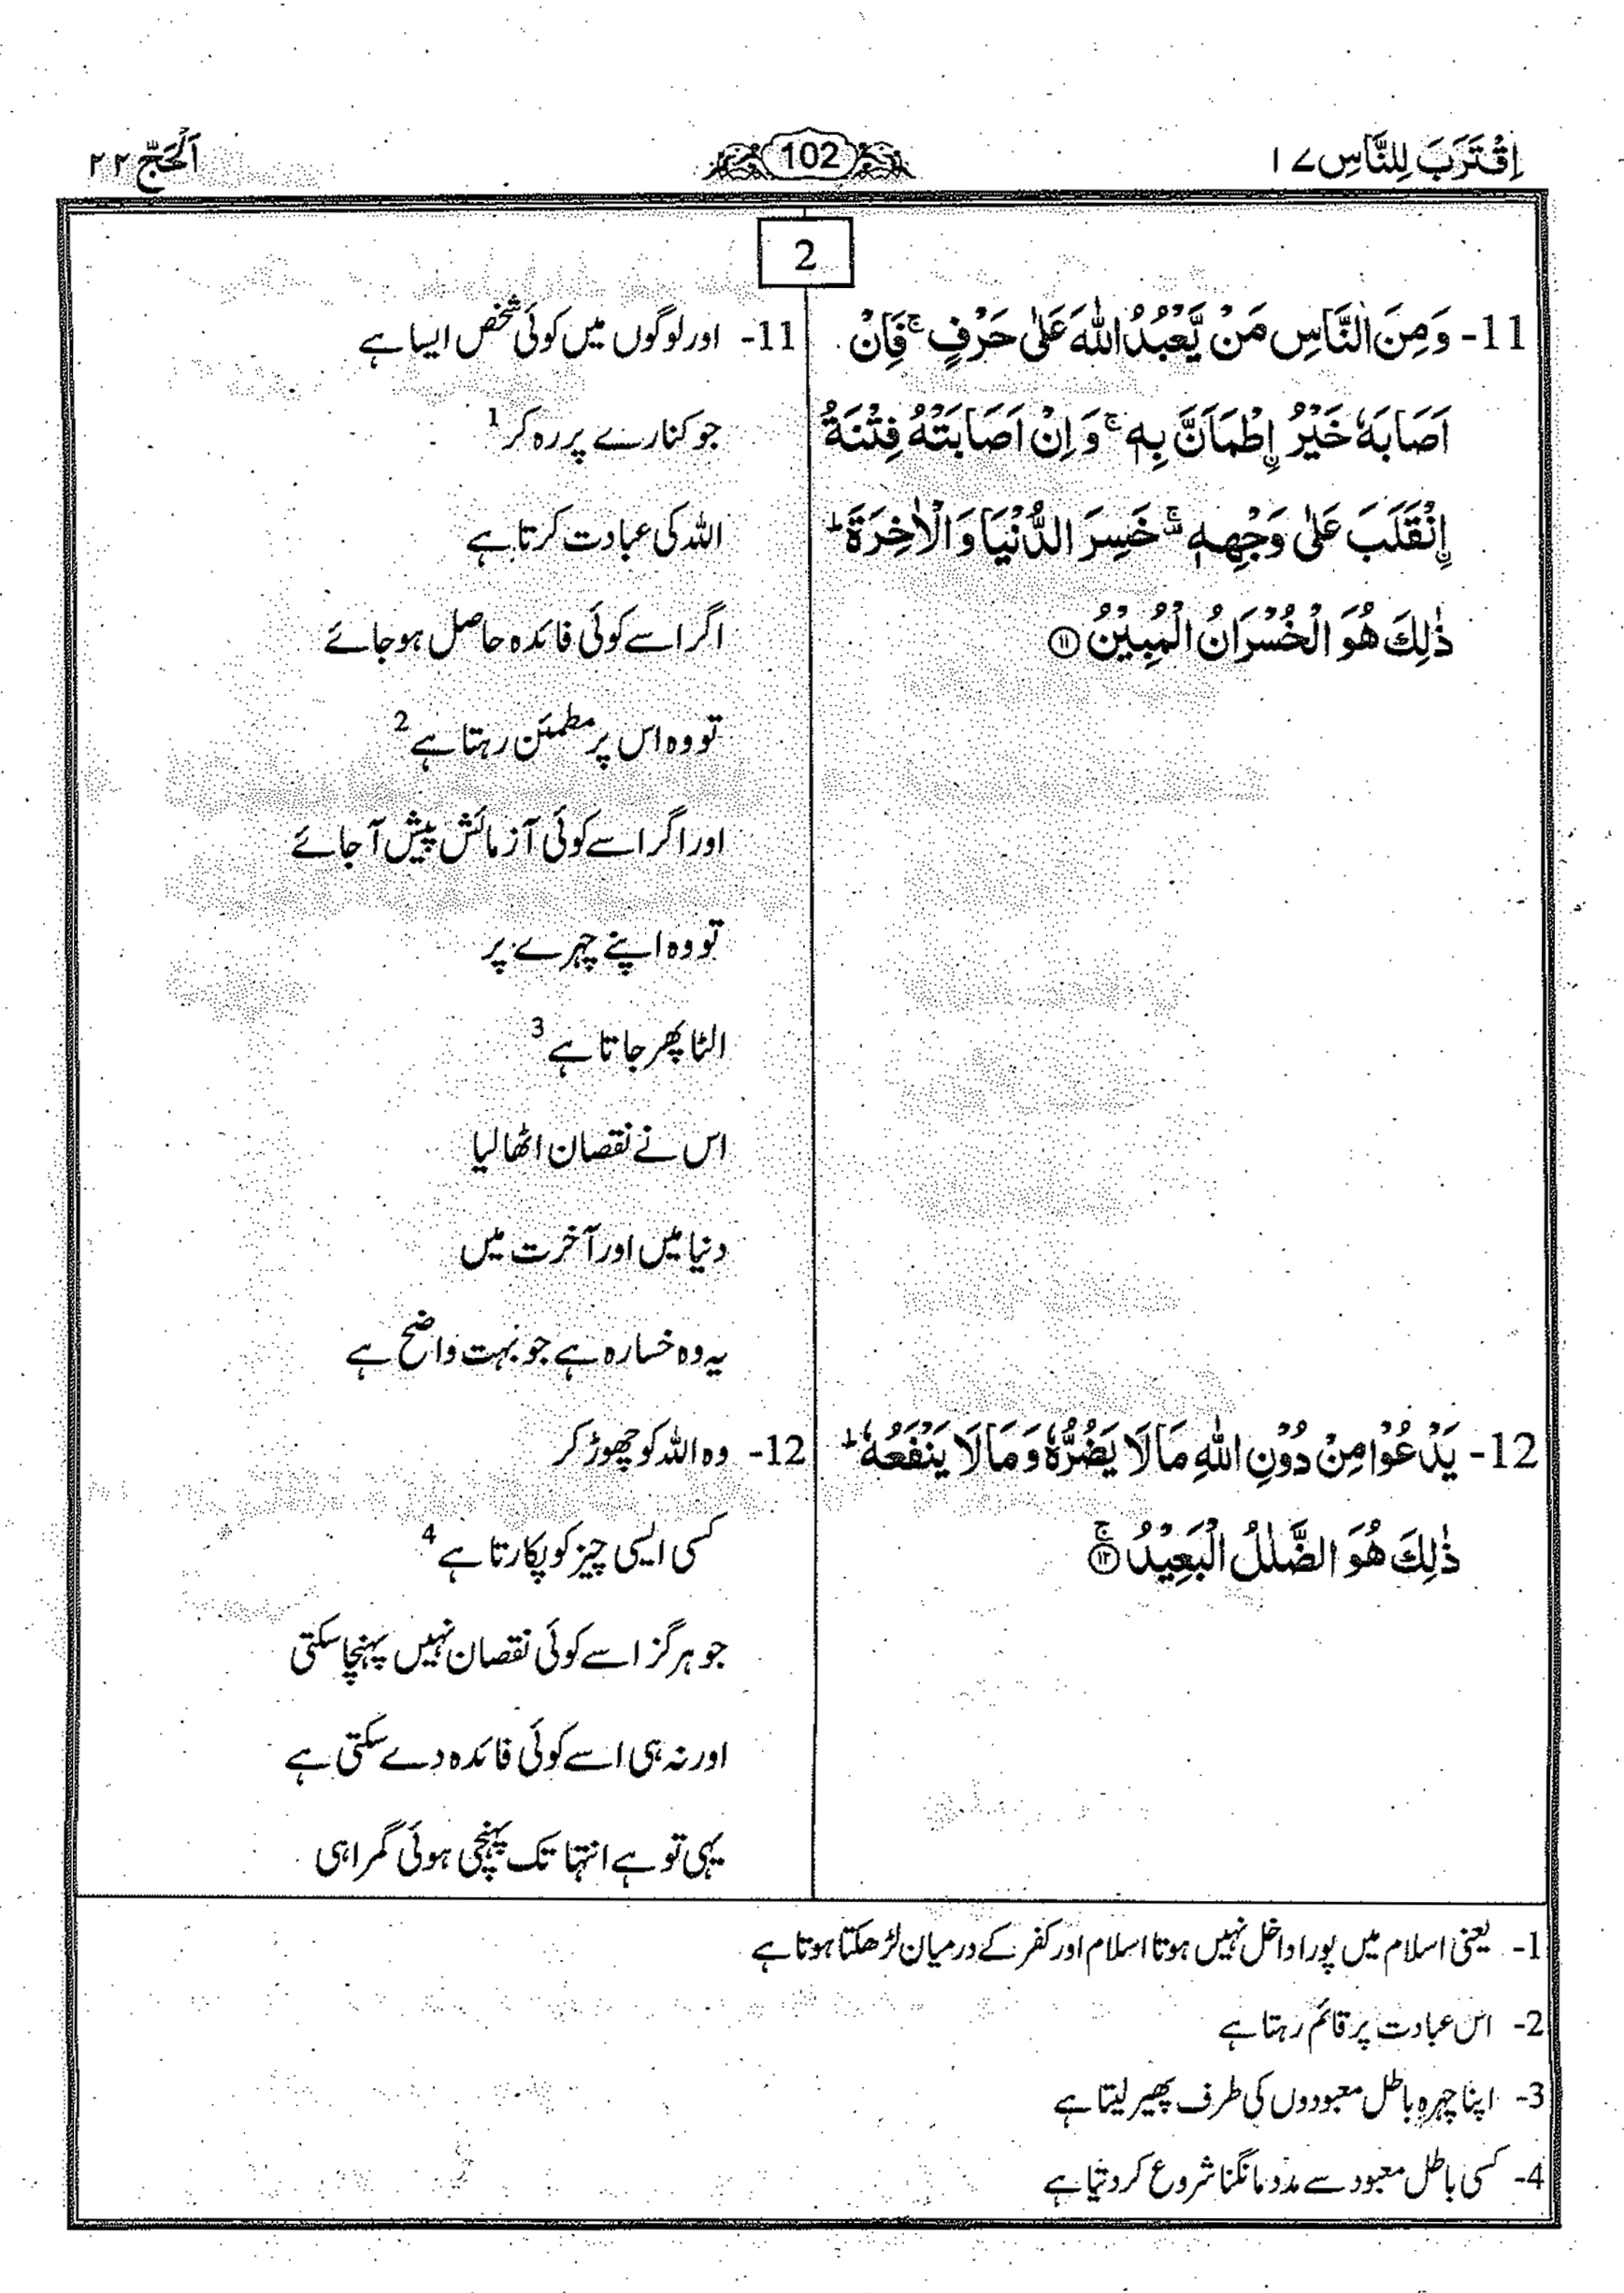 اِقْتَرَبَ لِلنَّاسِ ١٧
102
اَلْحَجّ ٢٢
2
11- وَمِنَ النَّاسِ مَنْ يَّعْبُدُ اللّٰهَ عَلٰى حَرْفٍ ۚ فَاِنْ
اَصَابَهٗ خَيْرُ اِۨطْمَاَنَّ بِهٖ ۚ وَاِنْ اَصَابَتْهُ فِتْنَةُ
اِۨنْقَلَبَ عَلٰى وَجْهِهٖ ۚ خَسِرَ الدُّنْيَا وَالْاٰخِرَةَ ؕ
ذٰلِكَ هُوَ الْخُسْرَانُ الْمُبِيْنُ ۝۱۱
11- اور لوگوں میں کوئی شخص ایسا ہے
جو کنارے پر رہ کر 1
اللہ کی عبادت کرتا ہے
اگر اسے کوئی فائدہ حاصل ہو جائے
تو وہ اس پر مطمئن رہتا ہے 2
اور اگر اسے کوئی آزمائش پیش آ جائے
تو وہ اپنے چہرے پر
الٹا پھر جاتا ہے 3
اس نے نقصان اٹھا لیا
دنیا میں اور آخرت میں
یہ وہ خسارہ ہے جو بہت واضح ہے
12- يَدْعُوْا مِنْ دُوْنِ اللّٰهِ مَا لَا يَضُرُّهٗ وَمَا لَا يَنْفَعُهٗ ؕ
ذٰلِكَ هُوَ الضَّلٰلُ الْبَعِيْدُ ۝۱۲ ۚ
12- وہ اللہ کو چھوڑ کر
کسی ایسی چیز کو پکارتا ہے 4
جو ہرگز اسے کوئی نقصان نہیں پہنچا سکتی
اور نہ ہی اسے کوئی فائدہ دے سکتی ہے
یہی تو ہے انتہا تک پہنچی ہوئی گمراہی
1- یعنی اسلام میں پورا داخل نہیں ہوتا اسلام اور کفر کے درمیان لڑھکتا ہوتا ہے
2- اس عبادت پر قائم رہتا ہے
3- اپنا چہرہ باطل معبودوں کی طرف پھیر لیتا ہے
4- کسی باطل معبود سے مدد مانگنا شروع کر دیتا ہے